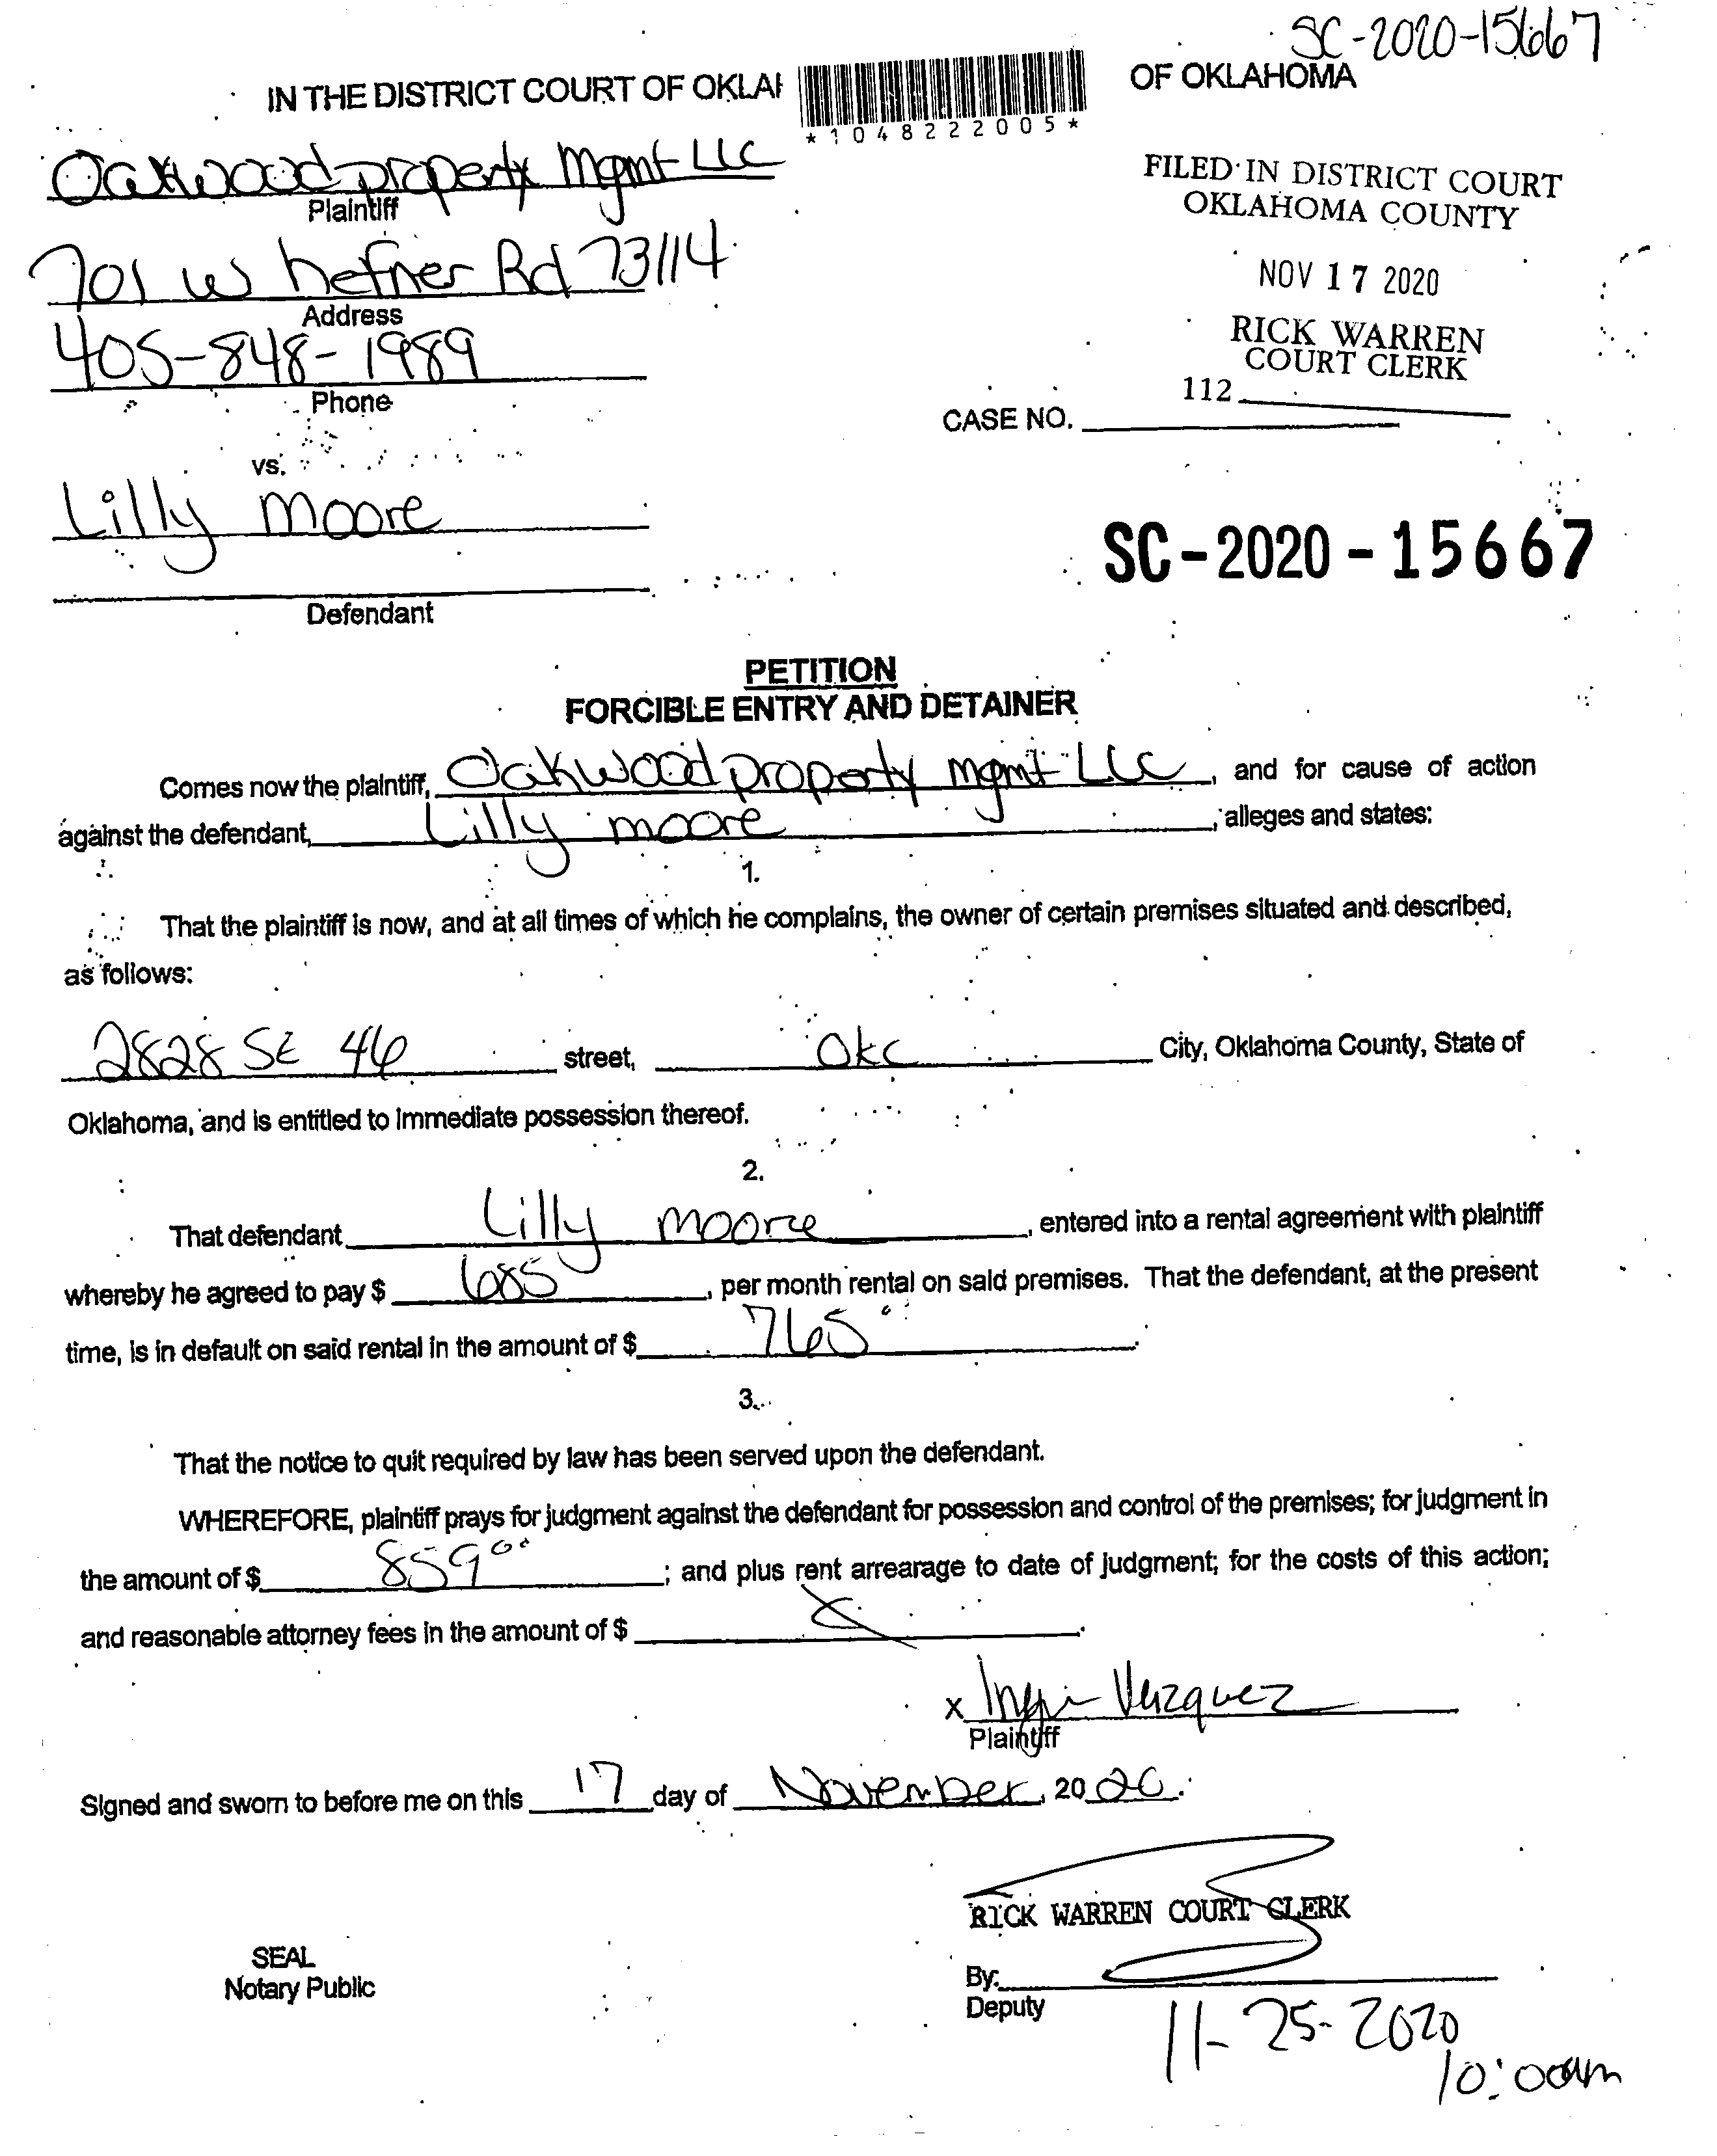 SC-2020-15667
IN THE DISTRICT COURT OF OKLAH OF OKLAHOMA
*1048222005*
Oakwood property Mgmt LLC
Plaintiff
FILED IN DISTRICT COURT
OKLAHOMA COUNTY
701 W hefner Rd 73114
Address
NOV 17 2020
405-848-1989
Phone
RICK WARREN
COURT CLERK
112
CASE NO.
vs.
Lilly moore
SC-2020-15667
Defendant
PETITION
FORCIBLE ENTRY AND DETAINER
Comes now the plaintiff, Oakwood property mgmt LLC, and for cause of action
against the defendant, Lilly moore, alleges and states:
1.
That the plaintiff is now, and at all times of which he complains, the owner of certain premises situated and described,
as follows:
2828 SE 46 street, Okc City, Oklahoma County, State of
Oklahoma, and is entitled to immediate possession thereof.
2.
That defendant Lilly moore, entered into a rental agreement with plaintiff
whereby he agreed to pay $ 685, per month rental on said premises. That the defendant, at the present
time, is in default on said rental in the amount of $ 765.
3.
That the notice to quit required by law has been served upon the defendant.
WHEREFORE, plaintiff prays for judgment against the defendant for possession and control of the premises; for judgment in
the amount of $ 859 00; and plus rent arrearage to date of judgment; for the costs of this action;
and reasonable attorney fees in the amount of $
x Vazquez
Plaintiff
Signed and sworn to before me on this 17 day of November, 2020.
RICK WARREN COURT CLERK
SEAL
Notary Public
By:
Deputy
11-25-2020
10:00am